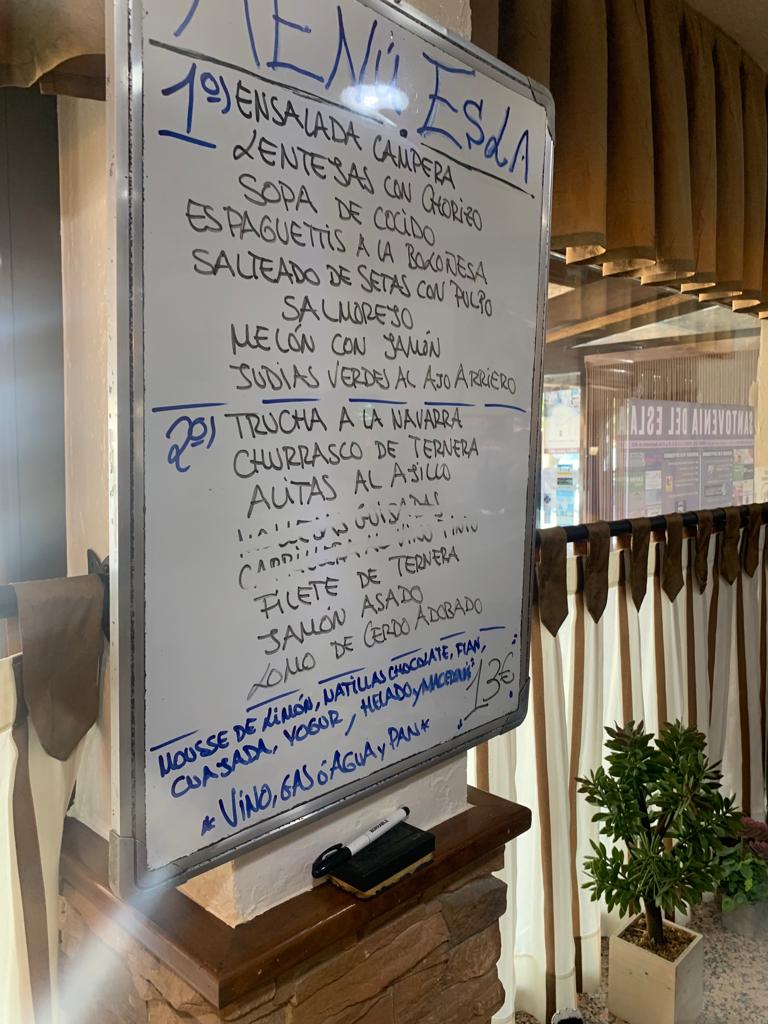 MENÚ ESLA
1º) ENSALADA CAMPERA
LENTEJAS CON CHORIZO
SOPA DE COCIDO
ESPAGUETTIS A LA BOLOÑESA
SALTEADO DE SETAS CON PULPO
SALMOREJO
MELÓN CON JAMÓN
JUDIAS VERDES AL AJO ARRIERO
2º) TRUCHA A LA NAVARRA
CHURRASCO DE TERNERA
ALITAS AL AJILLO
FILETE DE TERNERA
JAMÓN ASADO
LOMO DE CERDO ADOBADO
MOUSSE DE LIMÓN, NATILLAS CHOCOLATE, FLAN,
CUAJADA, YOGUR, HELADO y MACEDONIA
13€
* VINO, GAS ó AGUA y PAN *
SANTOVENIA DEL ESLA